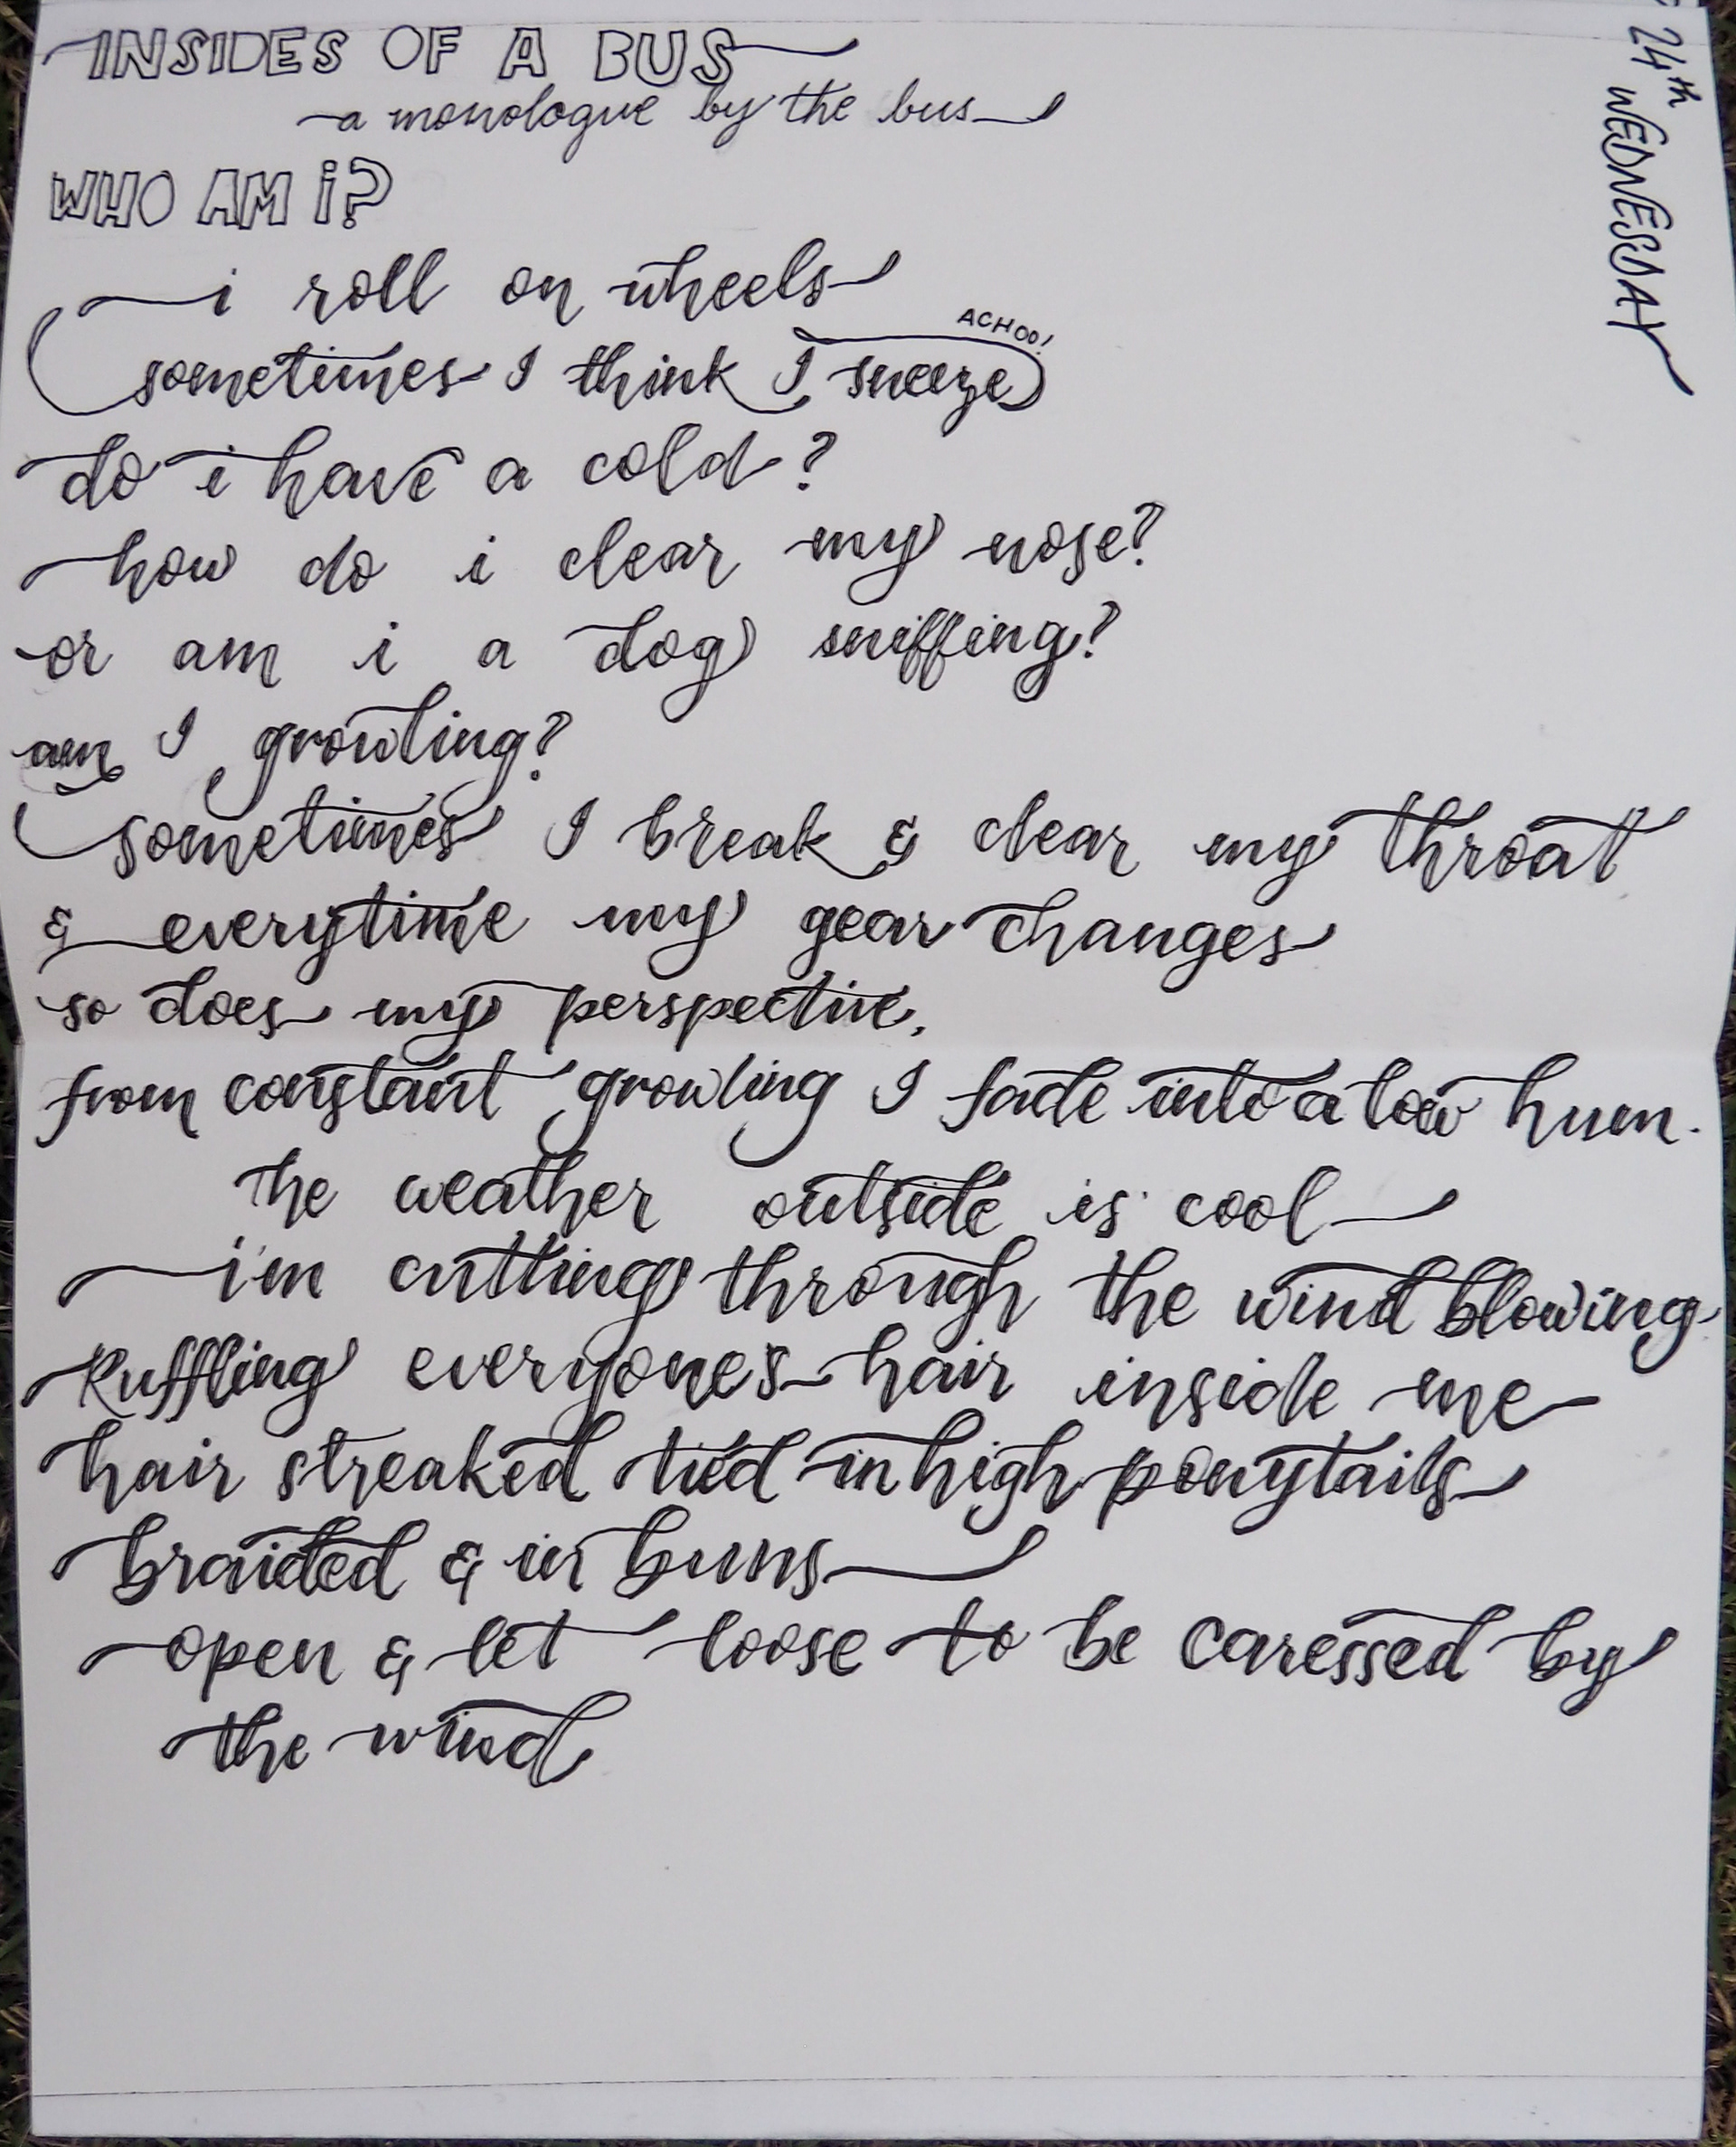 INSIDES OF A BUS
a monologue by the bus
24th WEDNESDAY
WHO AM i?
i roll on wheels
ACHOO!
sometimes I think I sneeze
do i have a cold?
how do i clear my nose?
or am i a dog sniffing?
am I growling?
sometimes I break & clear my throat
& everytime my gear changes
so does my perspective.
from constant growling I fade into a low hum.
the weather outside is cool
i'm cutting through the wind blowing
Ruffling everyone's hair inside me
hair streaked tied in high ponytails
braided & in buns
open & let loose to be caressed by
the wind